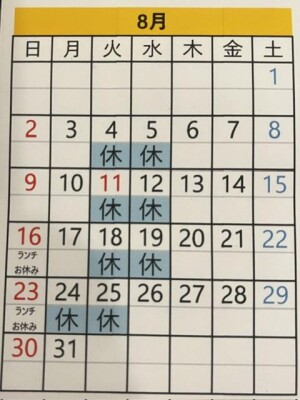 8月
日 月 火 水 木 金 土
1
2 3 4 5 6 7 8
休 休
9 10 11 12 13 14 15
休 休
16 17 18 19 20 21 22
ランチ
お休み 休 休
23 24 25 26 27 28 29
ランチ
お休み 休 休
30 31